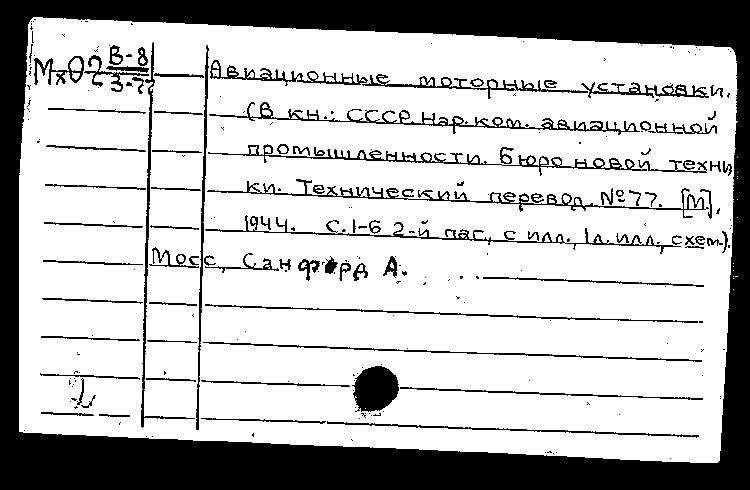 Мх02 В-8 Авиационные моторные установки.
3-77 (В кн.: СССР. Нар. ком. авиационной
промышленности. Бюро новой техни
ки. Технический перевод. №77. [М],
1944. С. 1-6 2-й паг., с илл., 1 л. илл., схем.).
Мосс, Санфорд А.
2